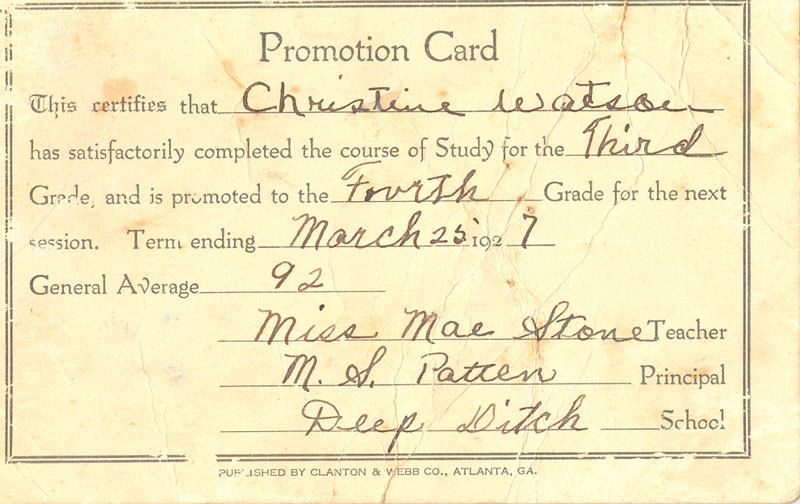 Promotion Card
This certifies that Christine Watson
has satisfactorily completed the course of Study for the Third
Grade, and is promoted to the Fourth Grade for the next
session. Term ending March 25, 1927
General Average 92
Miss Mae Stone Teacher
M. S. Patten Principal
Deep Ditch School
PUBLISHED BY CLANTON & WEBB CO., ATLANTA, GA.